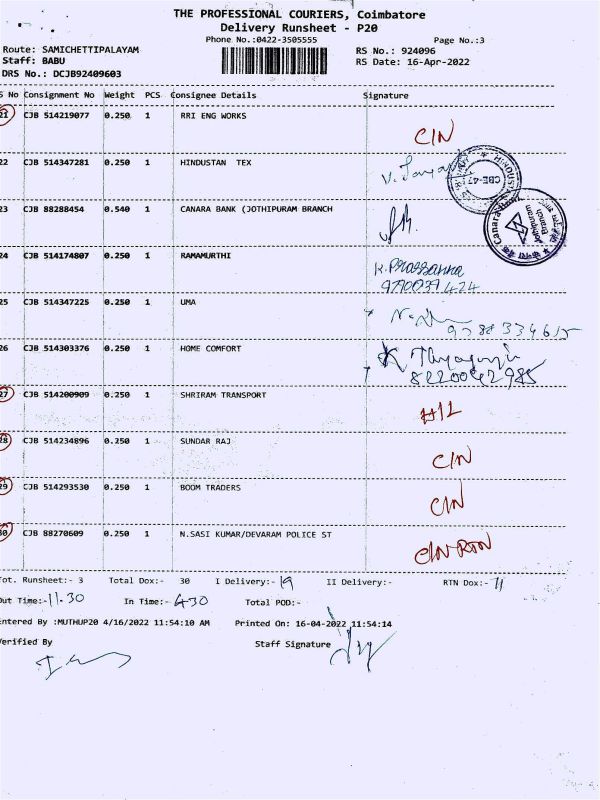 THE PROFESSIONAL COURIERS, Coimbatore
Delivery Runsheet - P20
Phone No.:0422-3505555
Page No.:3
Route: SAMICHETTIPALAYAM
RS No.: 924096
Staff: BABU
RS Date: 16-Apr-2022
DRS No.: DCJB92409603
S No Consignment No Weight PCS Consignee Details Signature
21 CJB 514219077 0.250 1 RRI ENG WORKS
CIN
22 CJB 514347281 0.250 1 HINDUSTAN TEX
CBE-47
HINDUSTAN
23 CJB 88288454 0.540 1 CANARA BANK (JOTHIPURAM BRANCH
Jothipuram
Branch
24 CJB 514174807 0.250 1 RAMAMURTHI
K.Prassanna
9790039424
25 CJB 514347225 0.250 1 UMA
26 CJB 514303376 0.250 1 HOME COMFORT
8220042985
27 CJB 514200909 0.250 1 SHRIRAM TRANSPORT
H/L
28 CJB 514234896 0.250 1 SUNDAR RAJ
CIN
29 CJB 514293530 0.250 1 BOOM TRADERS
CIN
30 CJB 88270609 0.250 1 N.SASI KUMAR/DEVARAM POLICE ST
CIN-RTN
Tot. Runsheet:- 3 Total Dox:- 30 I Delivery:- 19 II Delivery:- RTN Dox:- 11
Out Time:- 11.30 In Time:- 4.30 Total POD:-
Entered By :MUTHUP20 4/16/2022 11:54:10 AM Printed On: 16-04-2022 11:54:14
Verified By Staff Signature